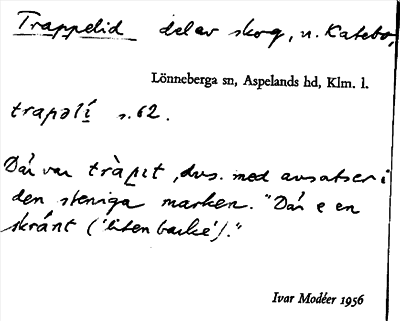 Trappelid del av skog, n. Katebo,
Lönneberga sn, Aspelands hd, Klm. l.
trapəlí s. 62.
Dä'r var tràpɪt, dvs. med avsatser i
den steniga marken. "Dä'r e en
skránt ('liten backe')."
Ivar Modéer 1956